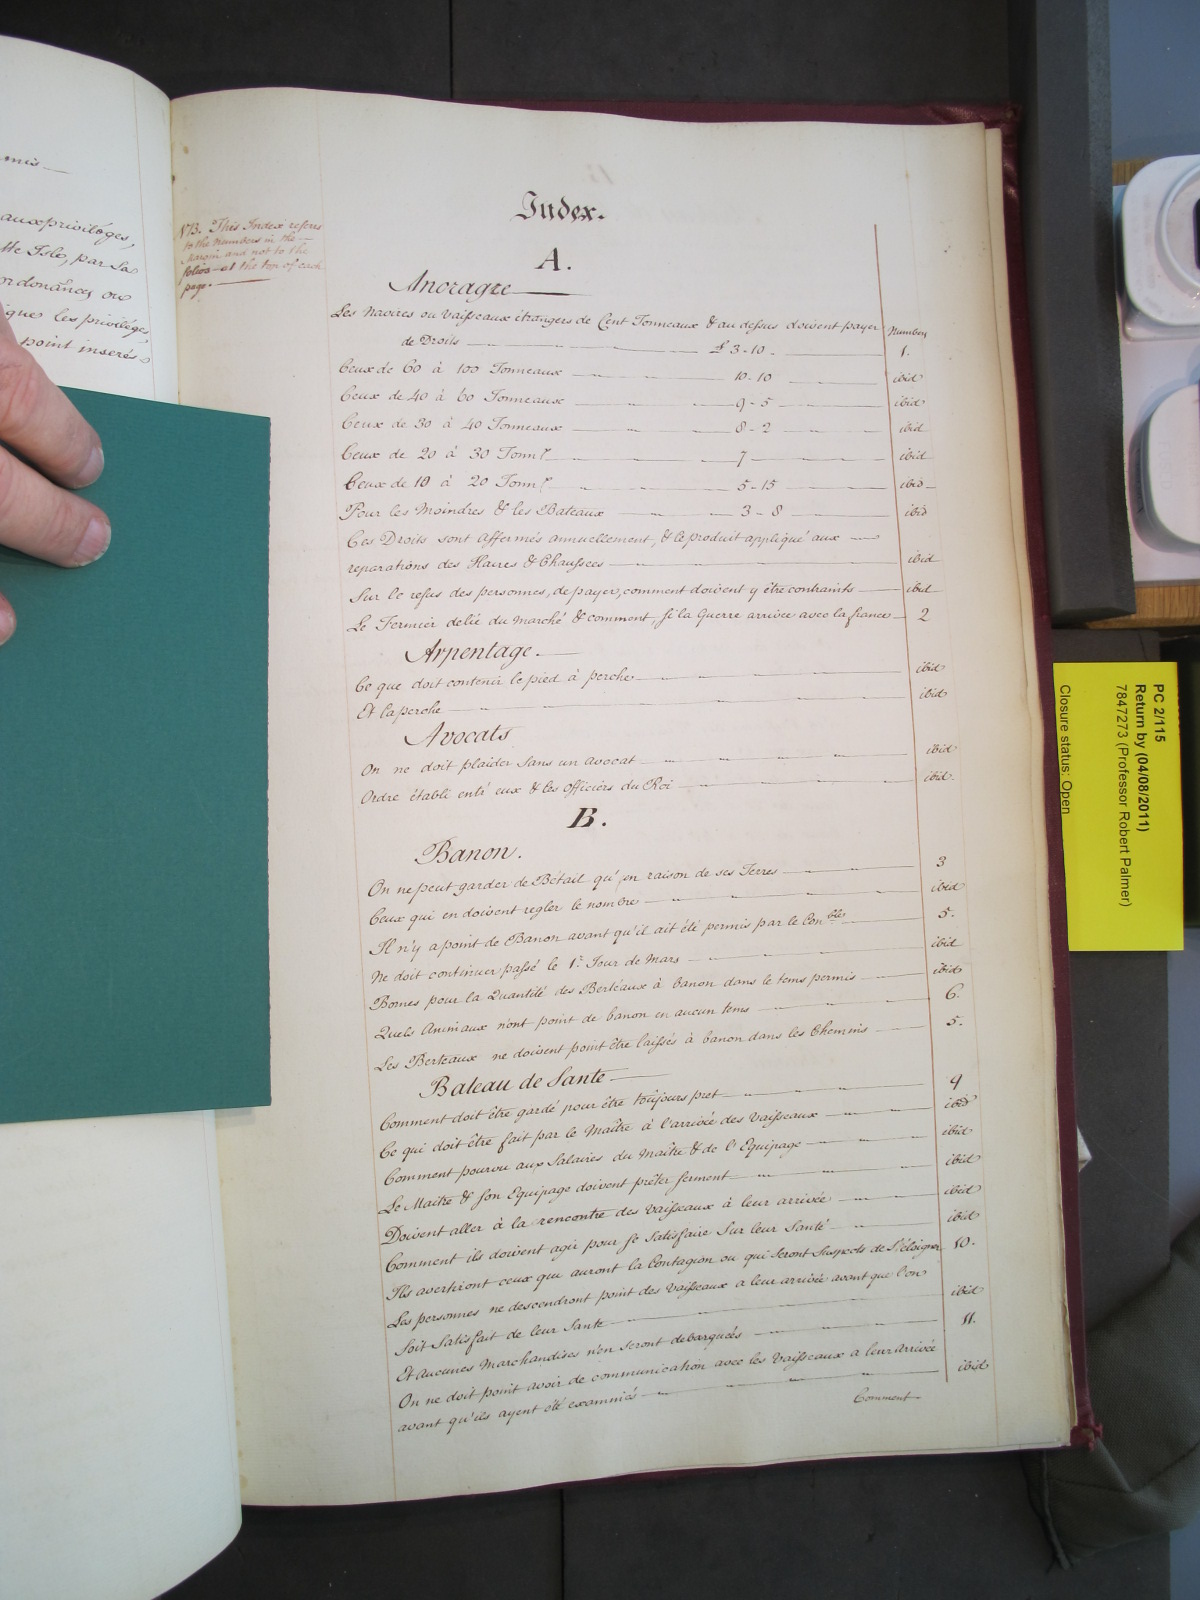 mis
aux privileges,
tte Isle, par Sa
ordonances ou
que les privileges,
point inserés
N.B. This Index refers
to the numbers in the
Margin and not to the
folios at the top of each
page.
Index.
A.
Ancragre
Les Navires ou Vaisseaux étrangers de Cent Tonneaux & au dessus doivent payer Numbers
de Droits £ 3-10 1.
Ceux de 60 à 100 Tonneaux 10-10 ibid
Ceux de 40 à 60 Tonneaux 9-5 ibid
Ceux de 30 à 40 Tonneaux 8-2 ibid
Ceux de 20 à 30 Tonnx 7 ibid
Ceux de 10 à 20 Tonnx 5-15 ibid
Pour les Moindres & les Bateaux 3-8 ibid
Ces Droits sont affermés annuellement, & le produit appliqué aux
reparations des Havres & Chaussees ibid
Sur le refus des personnes, de payer, comment doivent y être contraints ibid
Le Fermier delié du Marché & comment, si la Guerre arrivée avec la france 2
Arpentage.
Ce que doit contenir le pied à perche ibid
Et la perche ibid
Avocats
On ne doit plaider sans un avocat ibid
Ordre établi entr' eux & les Officiers du Roi ibid.
B.
Banon.
On ne peut garder de Bétail qu'en raison de ses Terres 3
Ceux qui en doivent regler le nombre ibid
Il n'y a point de Banon avant qu'il ait été permis par le Conble 5.
Ne doit continuer passé le 1r Jour de Mars ibid
Bornes pour la Quantité des Berteaux à banon dans le tems permis ibid
Quels Animaux n'ont point de banon en aucun tems 6.
Les Berteaux ne doivent point être laissés à banon dans les Chemins 5.
Bateau de Santé
Comment doit être gardé pour être toujours pret 9
Ce qui doit être fait par le Maître à l'arrivée des Vaisseaux ibid
Comment pourvu aux Salaires du Maître & de l'Equipage ibid
Le Maitre & son Equipage doivent prêter serment ibid
Doivent aller à la rencontre des vaisseaux à leur arrivée ibid
Comment ils doivent agir pour se Satisfaire Sur leur Santé ibid
Ils avertiront ceux qui auront la Contagion ou qui seront Suspects de S'éloigner 10.
Les personnes ne descendront point des Vaisseaux a leur arrivée avant que l'on
soit Satisfait de leur Sante ibid
Et aucunes Marchandises n'en Seront debarquées 11.
On ne doit point avoir de communication avec les Vaisseaux a leur arrivée
avant qu'ils ayent été examinés ibid
Comment
PC 2/115
Return by (04/08/2011)
7847273 (Professor Robert Palmer)
Closure status: Open